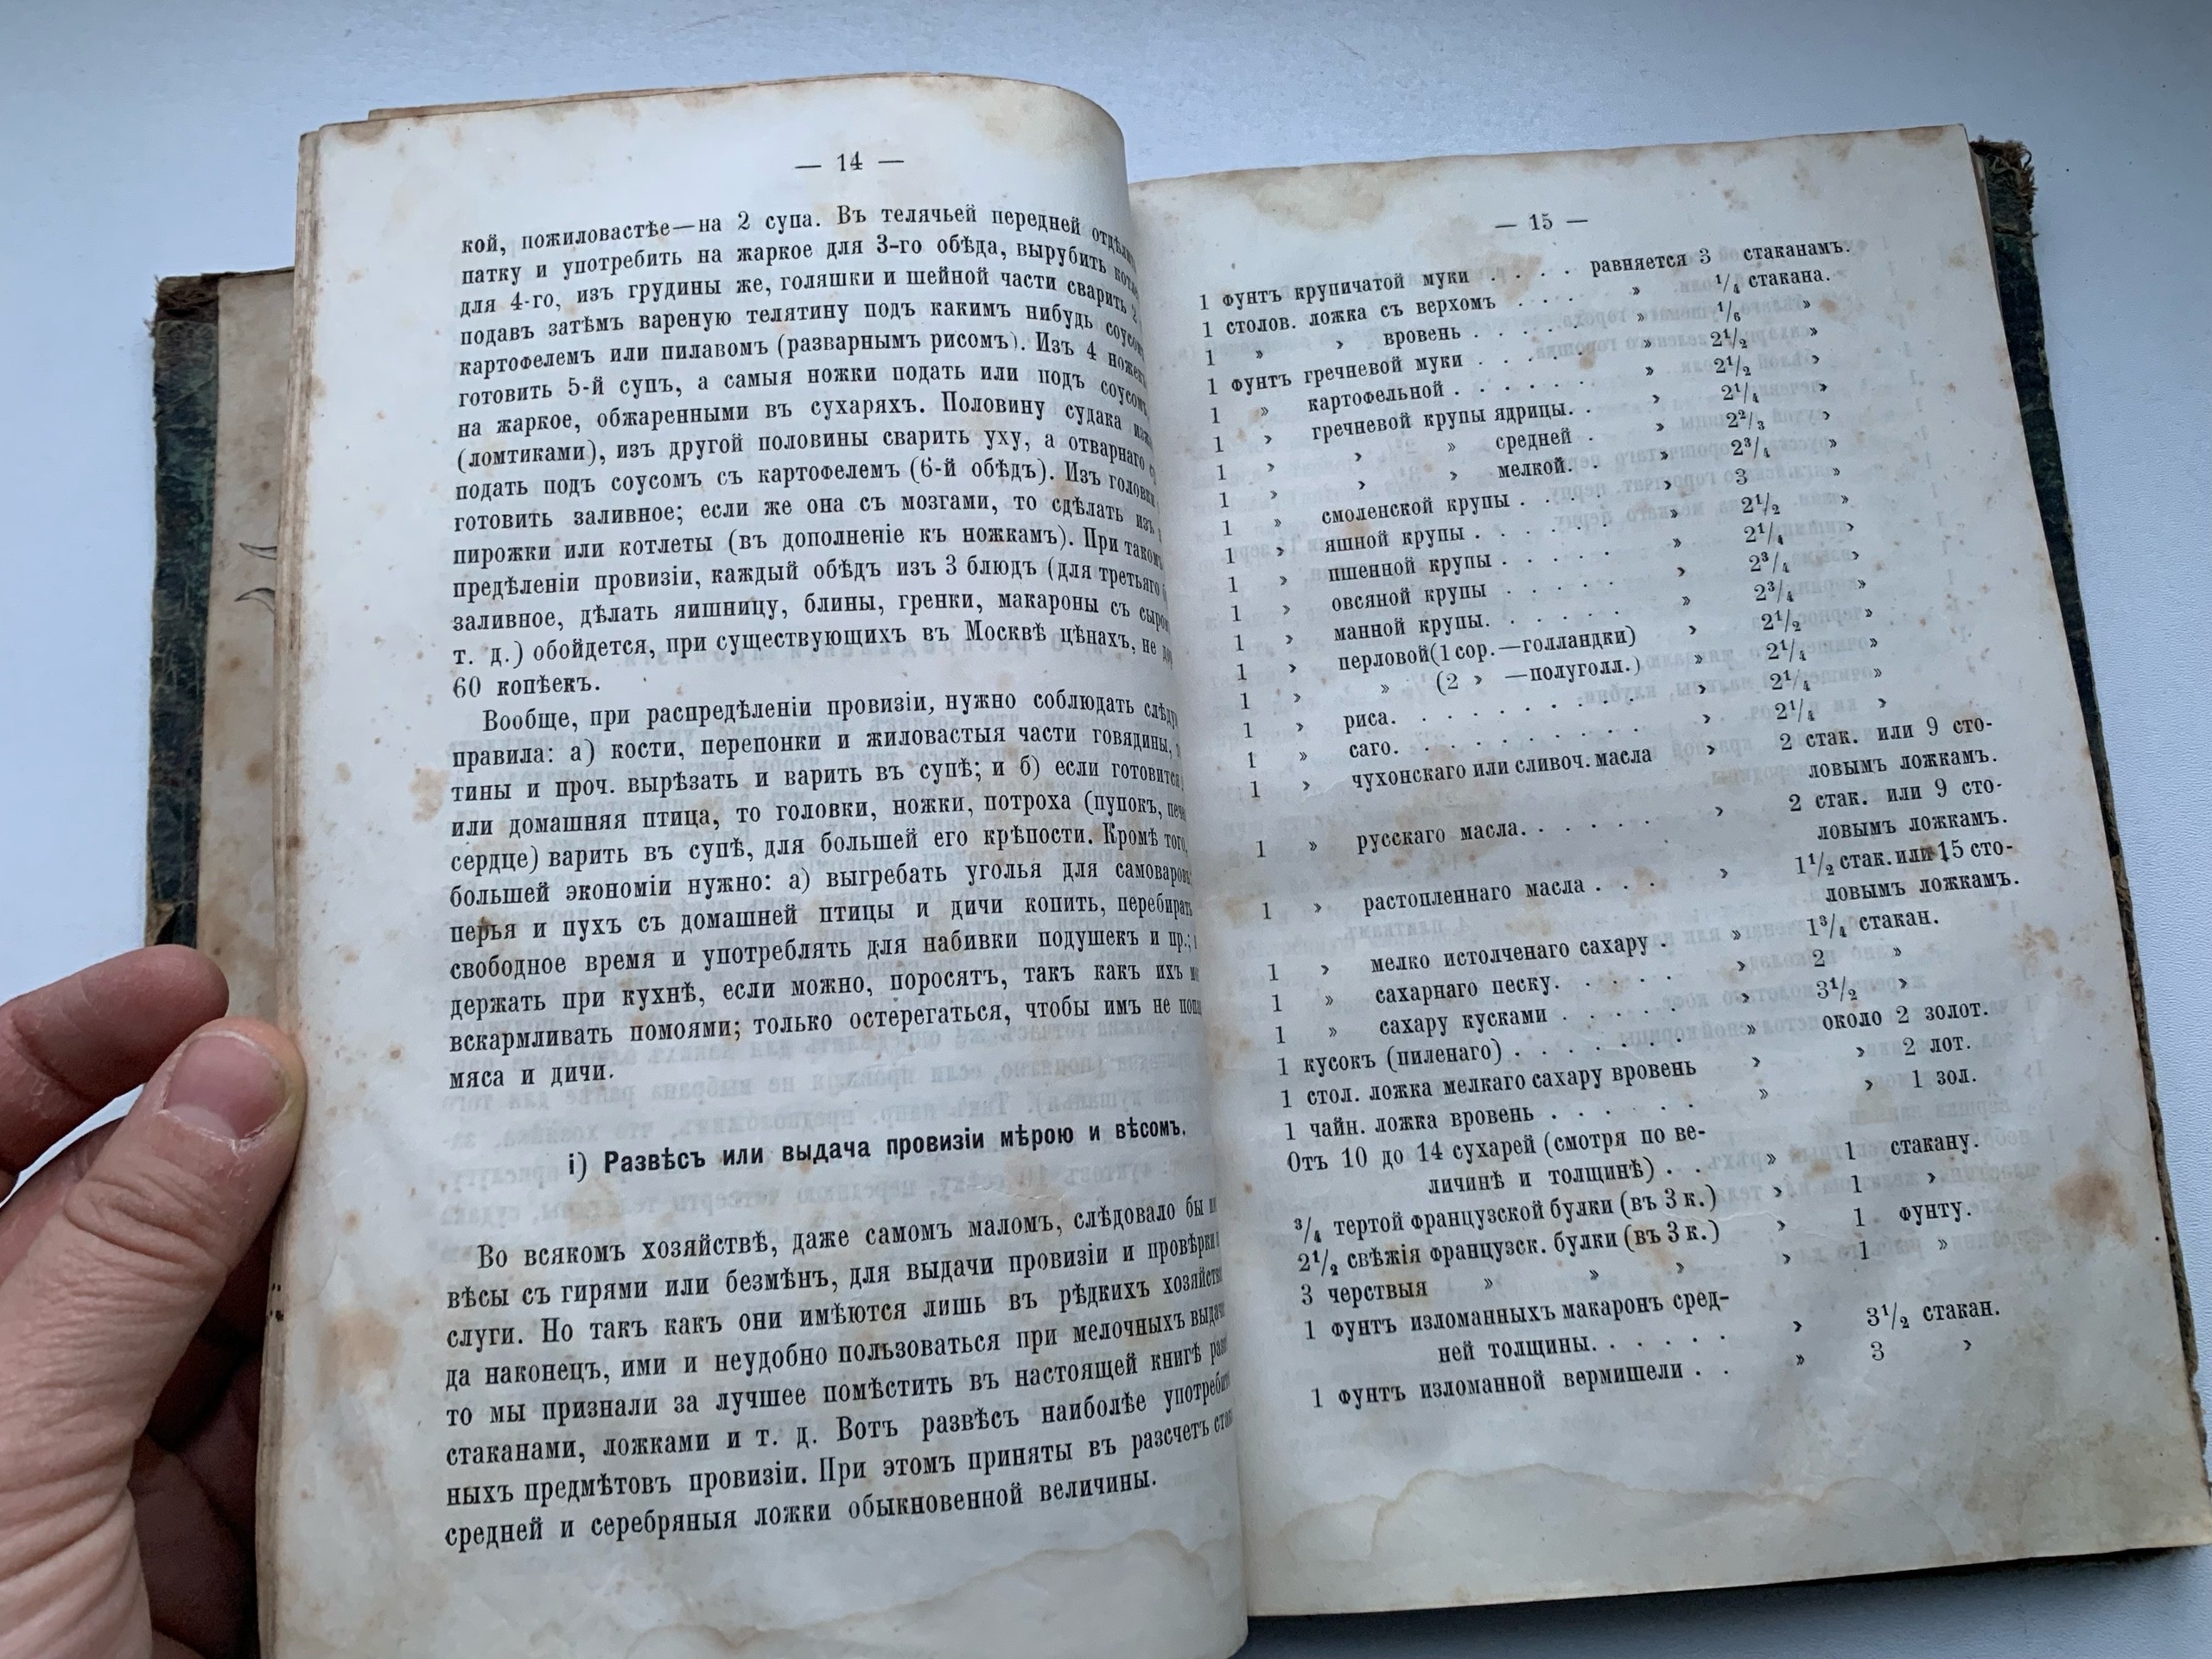 — 14 —
кой, пожиловастѣе—на 2 супа. Въ телячьей передней
патку и употребить на жаркое для 3-го обѣда, вырубить
для 4-го, изъ грудины же, голяшки и шейной части сварить 2
подавъ затѣмъ вареную телятину подъ какимъ нибудь соусомъ
картофелемъ или пилавомъ (разварнымъ рисомъ). Изъ 4 ножекъ
готовить 5-й супъ, а самыя ножки подать или подъ соусомъ,
на жаркое, обжаренными въ сухаряхъ. Половину судака
(ломтиками), изъ другой половины сварить уху, а отварнаго
подать подъ соусомъ съ картофелемъ (6-й обѣдъ). Изъ головки
готовить заливное; если же она съ мозгами, то сдѣлать изъ
пирожки или котлеты (въ дополненіе къ ножкамъ). При такомъ
предѣленіи провизіи, каждый обѣдъ изъ 3 блюдъ (для третьяго
заливное, дѣлать яишницу, блины, гренки, макароны съ сыромъ
т. д.) обойдется, при существующихъ въ Москвѣ цѣнахъ, не
60 копѣекъ.
Вообще, при распредѣленіи провизіи, нужно соблюдать
правила: а) кости, перепонки и жиловастыя части говядины,
тины и проч. вырѣзать и варить въ супѣ; и б) если готовится
или домашняя птица, то головки, ножки, потроха (пупокъ,
сердце) варить въ супѣ, для большей его крѣпости. Кромѣ того,
большей экономіи нужно: а) выгребать уголья для самоваровъ;
перья и пухъ съ домашней птицы и дичи копить, перебирать
свободное время и употреблять для набивки подушекъ и пр.;
держать при кухнѣ, если можно, поросятъ, такъ какъ ихъ
вскармливать помоями; только остерегаться, чтобы имъ не
мяса и дичи.
і) Развѣсъ или выдача провизіи мѣрою и вѣсомъ.
Во всякомъ хозяйствѣ, даже самомъ маломъ, слѣдовало бы
вѣсы съ гирями или безмѣнъ, для выдачи провизіи и провѣрки
слуги. Но такъ какъ они имѣются лишь въ рѣдкихъ
да наконецъ, ими и неудобно пользоваться при мелочныхъ
то мы признали за лучшее помѣстить въ настоящей книгѣ
стаканами, ложками и т. д. Вотъ развѣсъ наиболѣе
ныхъ предмѣтовъ провизіи. При этомъ приняты въ разсчетъ
средней и серебряныя ложки обыкновенной величины.
— 15 —
1 фунтъ крупичатой муки . . . . равняется 3 стаканамъ.
1 столов. ложка съ верхомъ . . . . » 1/4 стакана.
1 » » вровень . . . . . » 1/6 »
1 фунтъ гречневой муки . . . . . » 2 1/2 »
1 » картофельной . . . . . . » 2 1/2 »
1 » гречневой крупы ядрицы. . » 2 1/4 »
1 » » » средней . » 2 2/3 »
1 » » » мелкой. . » 2 3/4 »
1 » смоленской крупы . . . . . » 3 »
1 » яшной крупы . . . . . . » 2 1/2 »
1 » пшенной крупы . . . . . » 2 1/4 »
1 » овсяной крупы . . . . . » 2 3/4 »
1 » манной крупы. . . . . . » 2 3/4 »
1 » перловой (1 сор.—голландки) » 2 1/2 »
1 » » (2 » —полуголл.) » 2 1/4 »
1 » риса. . . . . . . . . . » 2 1/4 »
1 » саго. . . . . . . . . . » 2 1/4 »
1 » чухонскаго или сливоч. масла » 2 стак. или 9 сто-
ловымъ ложкамъ.
1 » русскаго масла. . . . . . » 2 стак. или 9 сто-
ловымъ ложкамъ.
1 » растопленнаго масла . . . » 1 1/2 стак. или 15 сто-
ловымъ ложкамъ.
1 » мелко истолченаго сахару . » 1 3/4 стакан.
1 » сахарнаго песку. . . . . » 2 »
1 » сахару кусками . . . . . » 3 1/2 »
1 кусокъ (пиленаго) . . . . . . . » около 2 золот.
1 стол. ложка мелкаго сахару вровень » » 2 лот.
1 чайн. ложка вровень . . . . . . » » 1 зол.
Отъ 10 до 14 сухарей (смотря по ве-
личинѣ и толщинѣ) . . » 1 стакану.
3/4 тертой французской булки (въ 3 к.) » 1 »
2 1/2 свѣжія французск. булки (въ 3 к.) » 1 фунту.
3 черствыя » » » » 1 »
1 фунтъ изломанныхъ макаронъ сред-
ней толщины. . . . . » 3 1/2 стакан.
1 фунтъ изломанной вермишели . . » 3 »